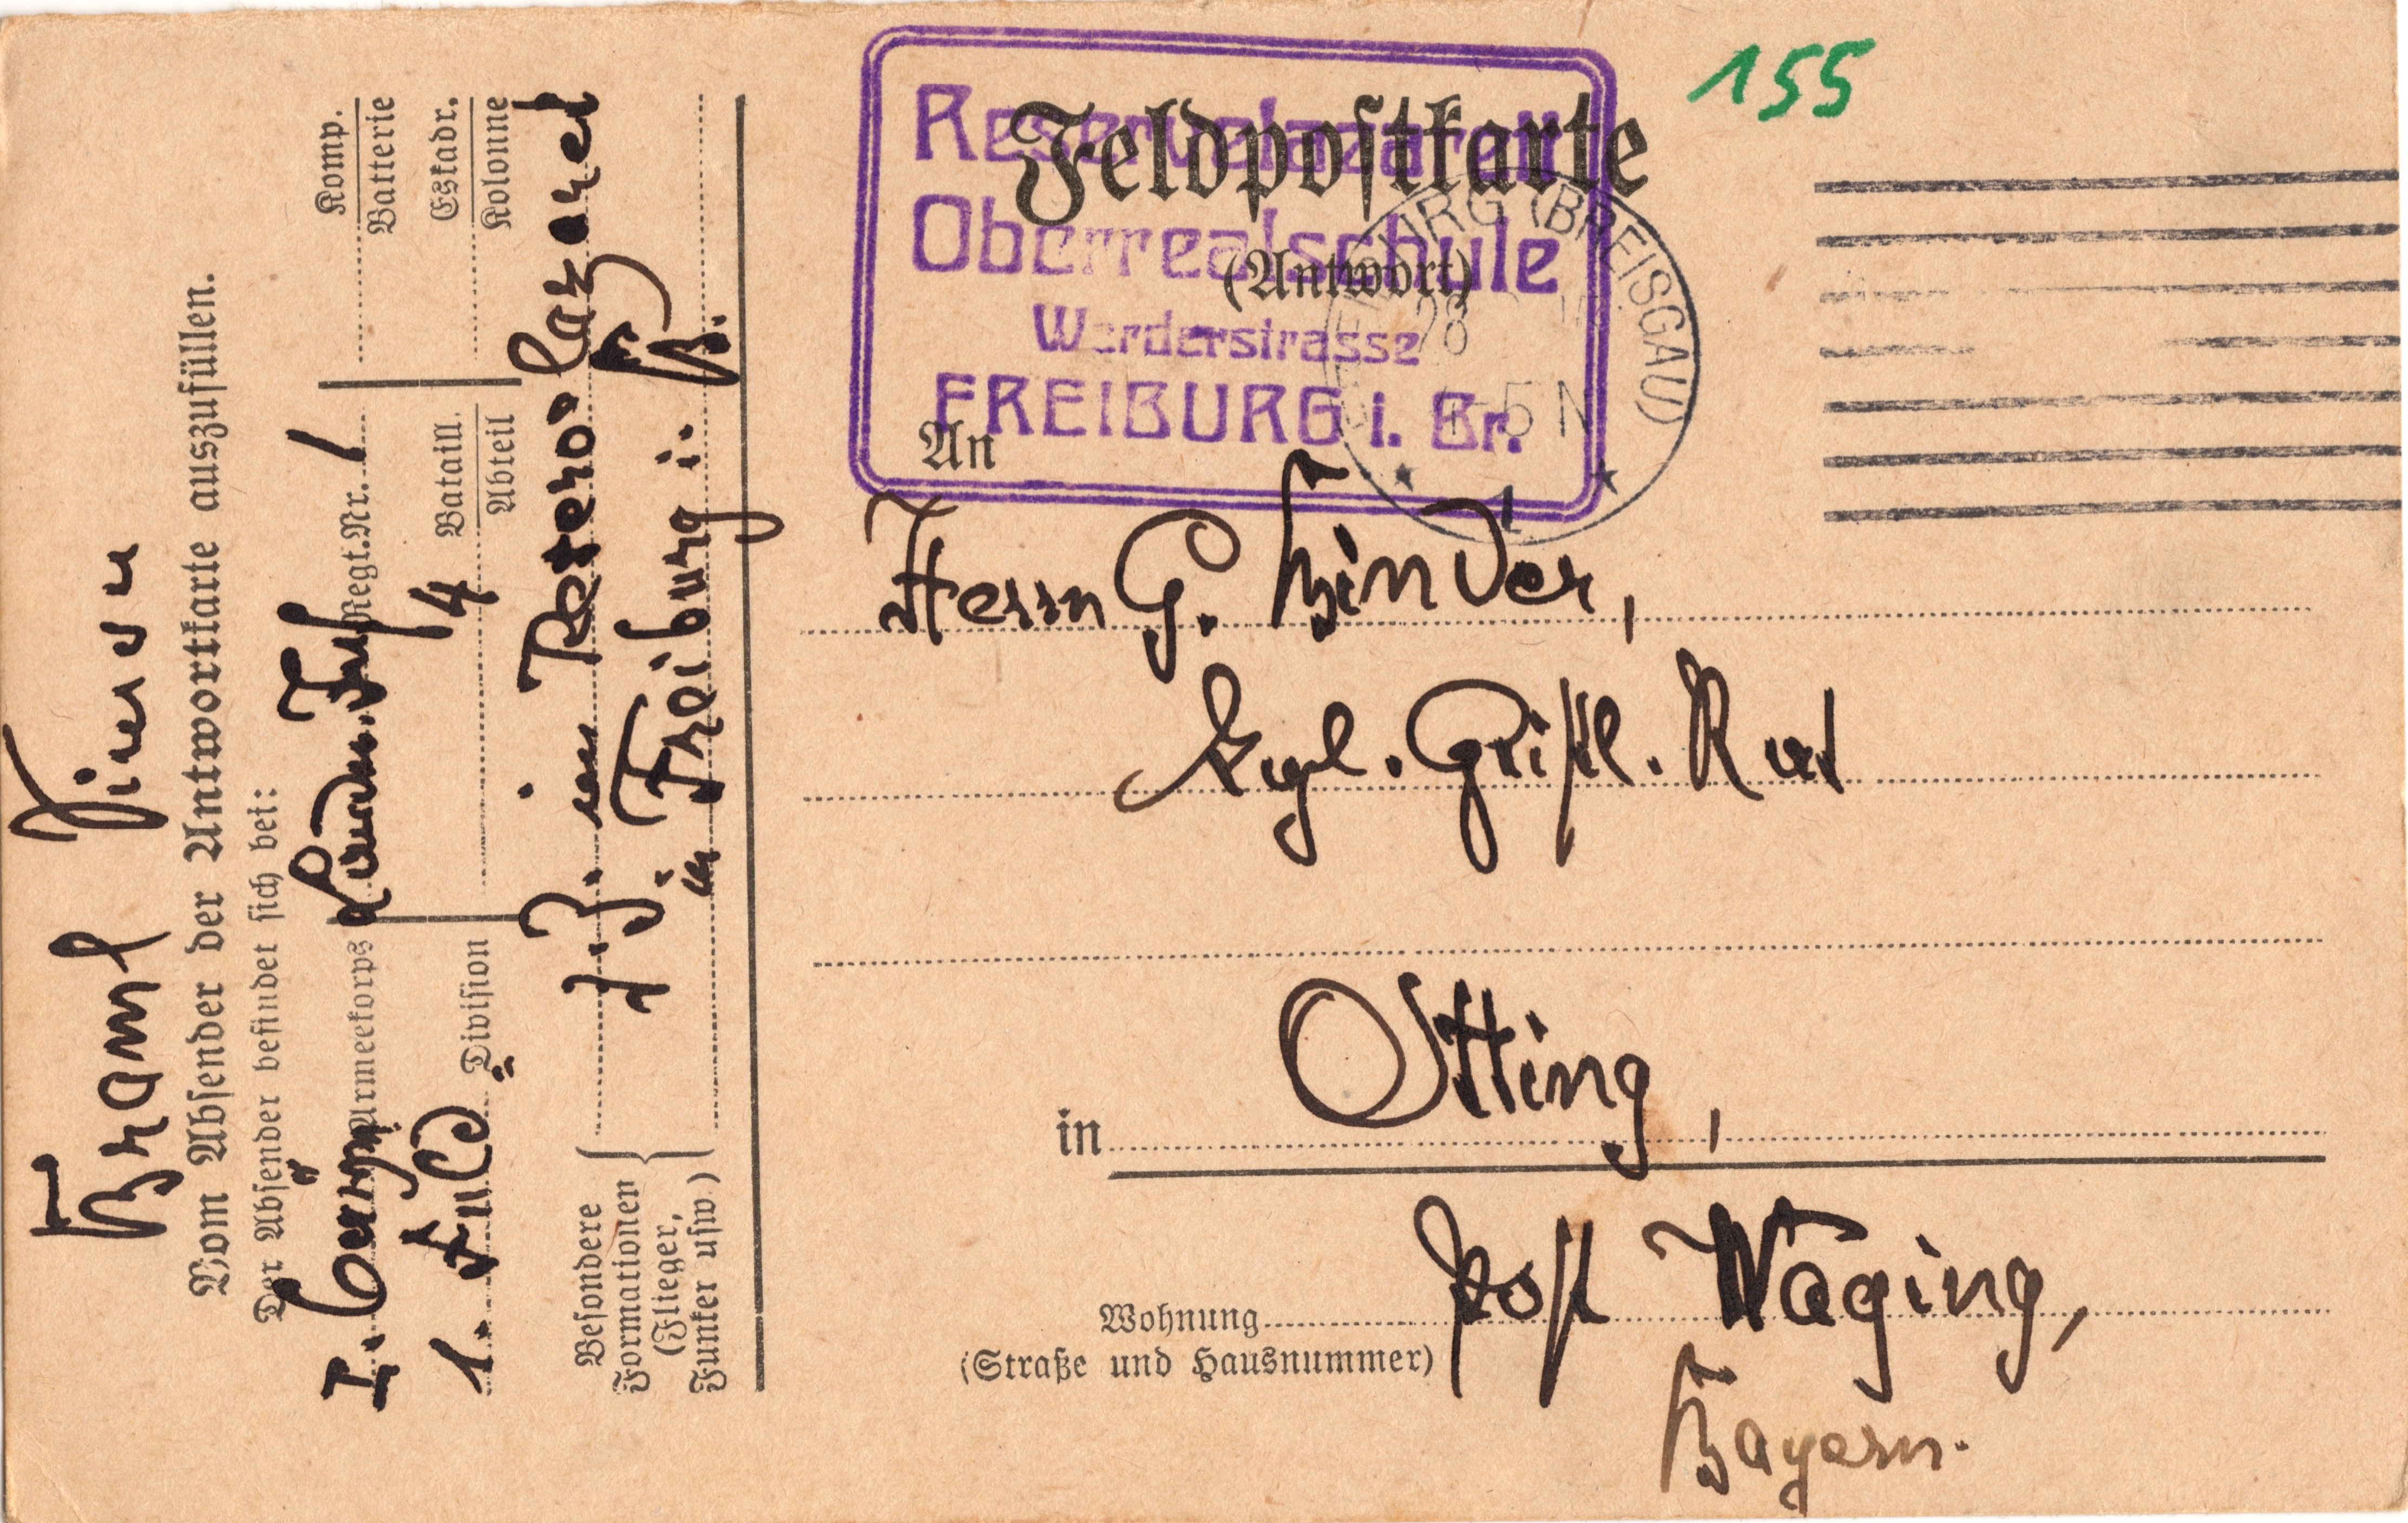 155
Feldpostkarte
(Antwort)
Reservelazarett
Oberrealschule
Werderstrasse
FREIBURG i. Br.
FREIBURG (BREISGAU)
28
4-5 N
1
An
Herrn G. Binder,
Kgl. Geistl. Rat
in Otting,
Wohnung Post Waging,
(Straße und Hausnummer)
Bayern.
Braml
Vom Absender der Antwortkarte auszufüllen.
Der Absender befindet sich bei:
I. bayr. Armeekorps Landw. Inf. Regt. Nr. 1 Komp.
Batterie
1. Division 4 Bataill.
Abteil
Eskadr.
Kolonne
Besondere
Formationen
(Flieger,
Funker usw.)
z. Z. im Reservelazaret
in Freiburg i. B.